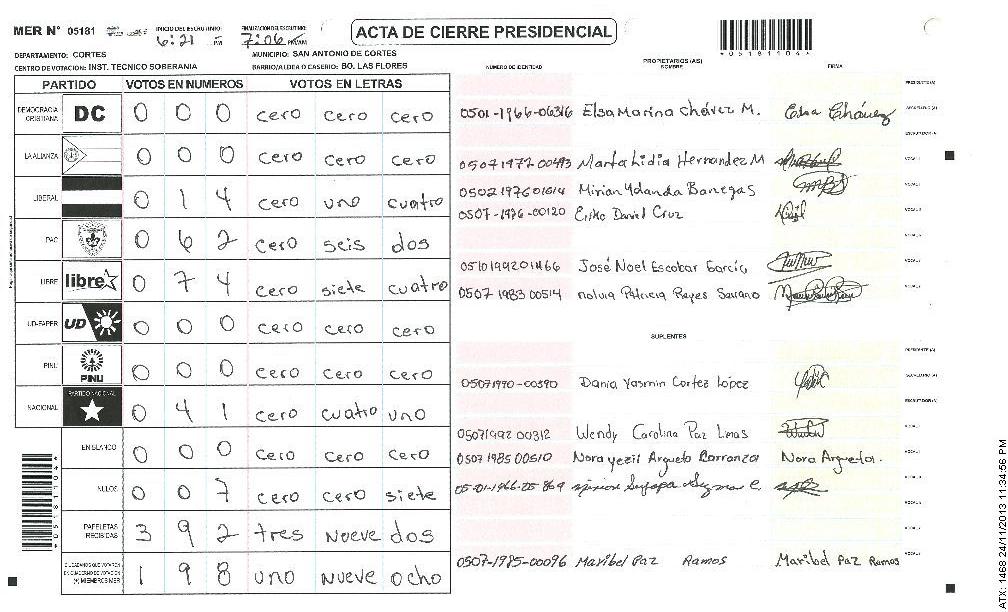 MER N° 05181 INICIO DEL ESCRUTINIO: 6:21 PM FINALIZACION DEL ESCRUTINIO: 7:06 PM/AM
ACTA DE CIERRE PRESIDENCIAL
*05181104*
DEPARTAMENTO: CORTES MUNICIPIO: SAN ANTONIO DE CORTES
CENTRO DE VOTACION: INST. TECNICO SOBERANIA BARRIO/ALDEA O CASERIO: BO. LAS FLORES
NUMERO DE IDENTIDAD PROPIETARIOS (AS) NOMBRE FIRMA
PARTIDO VOTOS EN NUMEROS VOTOS EN LETRAS
DEMOCRACIA CRISTIANA DC 0 0 0 cero cero cero
LA ALIANZA 0 0 0 cero cero cero
LIBERAL 0 1 4 cero uno cuatro
PAC 0 6 2 cero seis dos
LIBRE libre 0 7 4 cero siete cuatro
UD-FAPER UD 0 0 0 cero cero cero
PINU PINU 0 0 0 cero cero cero
NACIONAL PARTIDO NACIONAL 0 4 1 cero cuatro uno
EN BLANCO 0 0 0 cero cero cero
NULOS 0 0 7 cero cero siete
PAPELETAS RECIBIDAS 3 9 2 tres nueve dos
CIUDADANOS QUE VOTARON EN CUADERNO DE VOTACION (+) MIEMBROS MER 1 9 8 uno nueve ocho
*05181104*
0501-1966-06316 Elsa Marina Chávez M. Elsa Chávez
0507 1972 00493 Marta Lidia Hernandez M
0502 1976 01614 Mirian Yolanda Banegas
0507-1976-00120 Erike David Cruz
0510199201466 José Noel Escobar García
0507 1983 00514 nolvia Patricia Reyes Serrano
SUPLENTES
05071990-00390 Dania Yasmin Cortez López
05071992 00312 Wendy Carolina Paz Limas
0507 1985 00510 Nora yezil Argueta Carranza Nora Argueta.
05-01-1966-05869
0507-1985-00096 Maribel Paz Ramos Maribel Paz Ramos
ATX: 1468 24/11/2013 11:34:56 PM